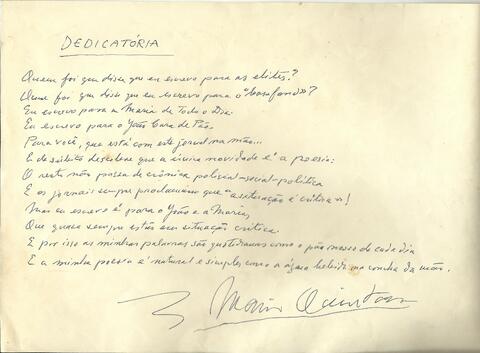 DEDICATÓRIA
Quem foi que disse que eu escrevo para as elites?
Quem foi que disse que eu escrevo para o "bas-fond"?
Eu escrevo para a Maria de Todo o Dia.
Eu escrevo para o João Cara de Pão.
Para você, que está com este jornal na mão...
E de súbito descobre que a única novidade é a poesia:
O resto não passa de crônica policial-social-política
E os jornais sempre proclamam que "a situação é crítica"!
Mas eu escrevo é para o João e a Maria,
Que quase sempre estão em situação crítica
E por isso as minhas palavras são quotidianas como o pão nosso de cada dia
E a minha poesia é natural e simples como a água bebida na concha da mão.
Mario Quintana